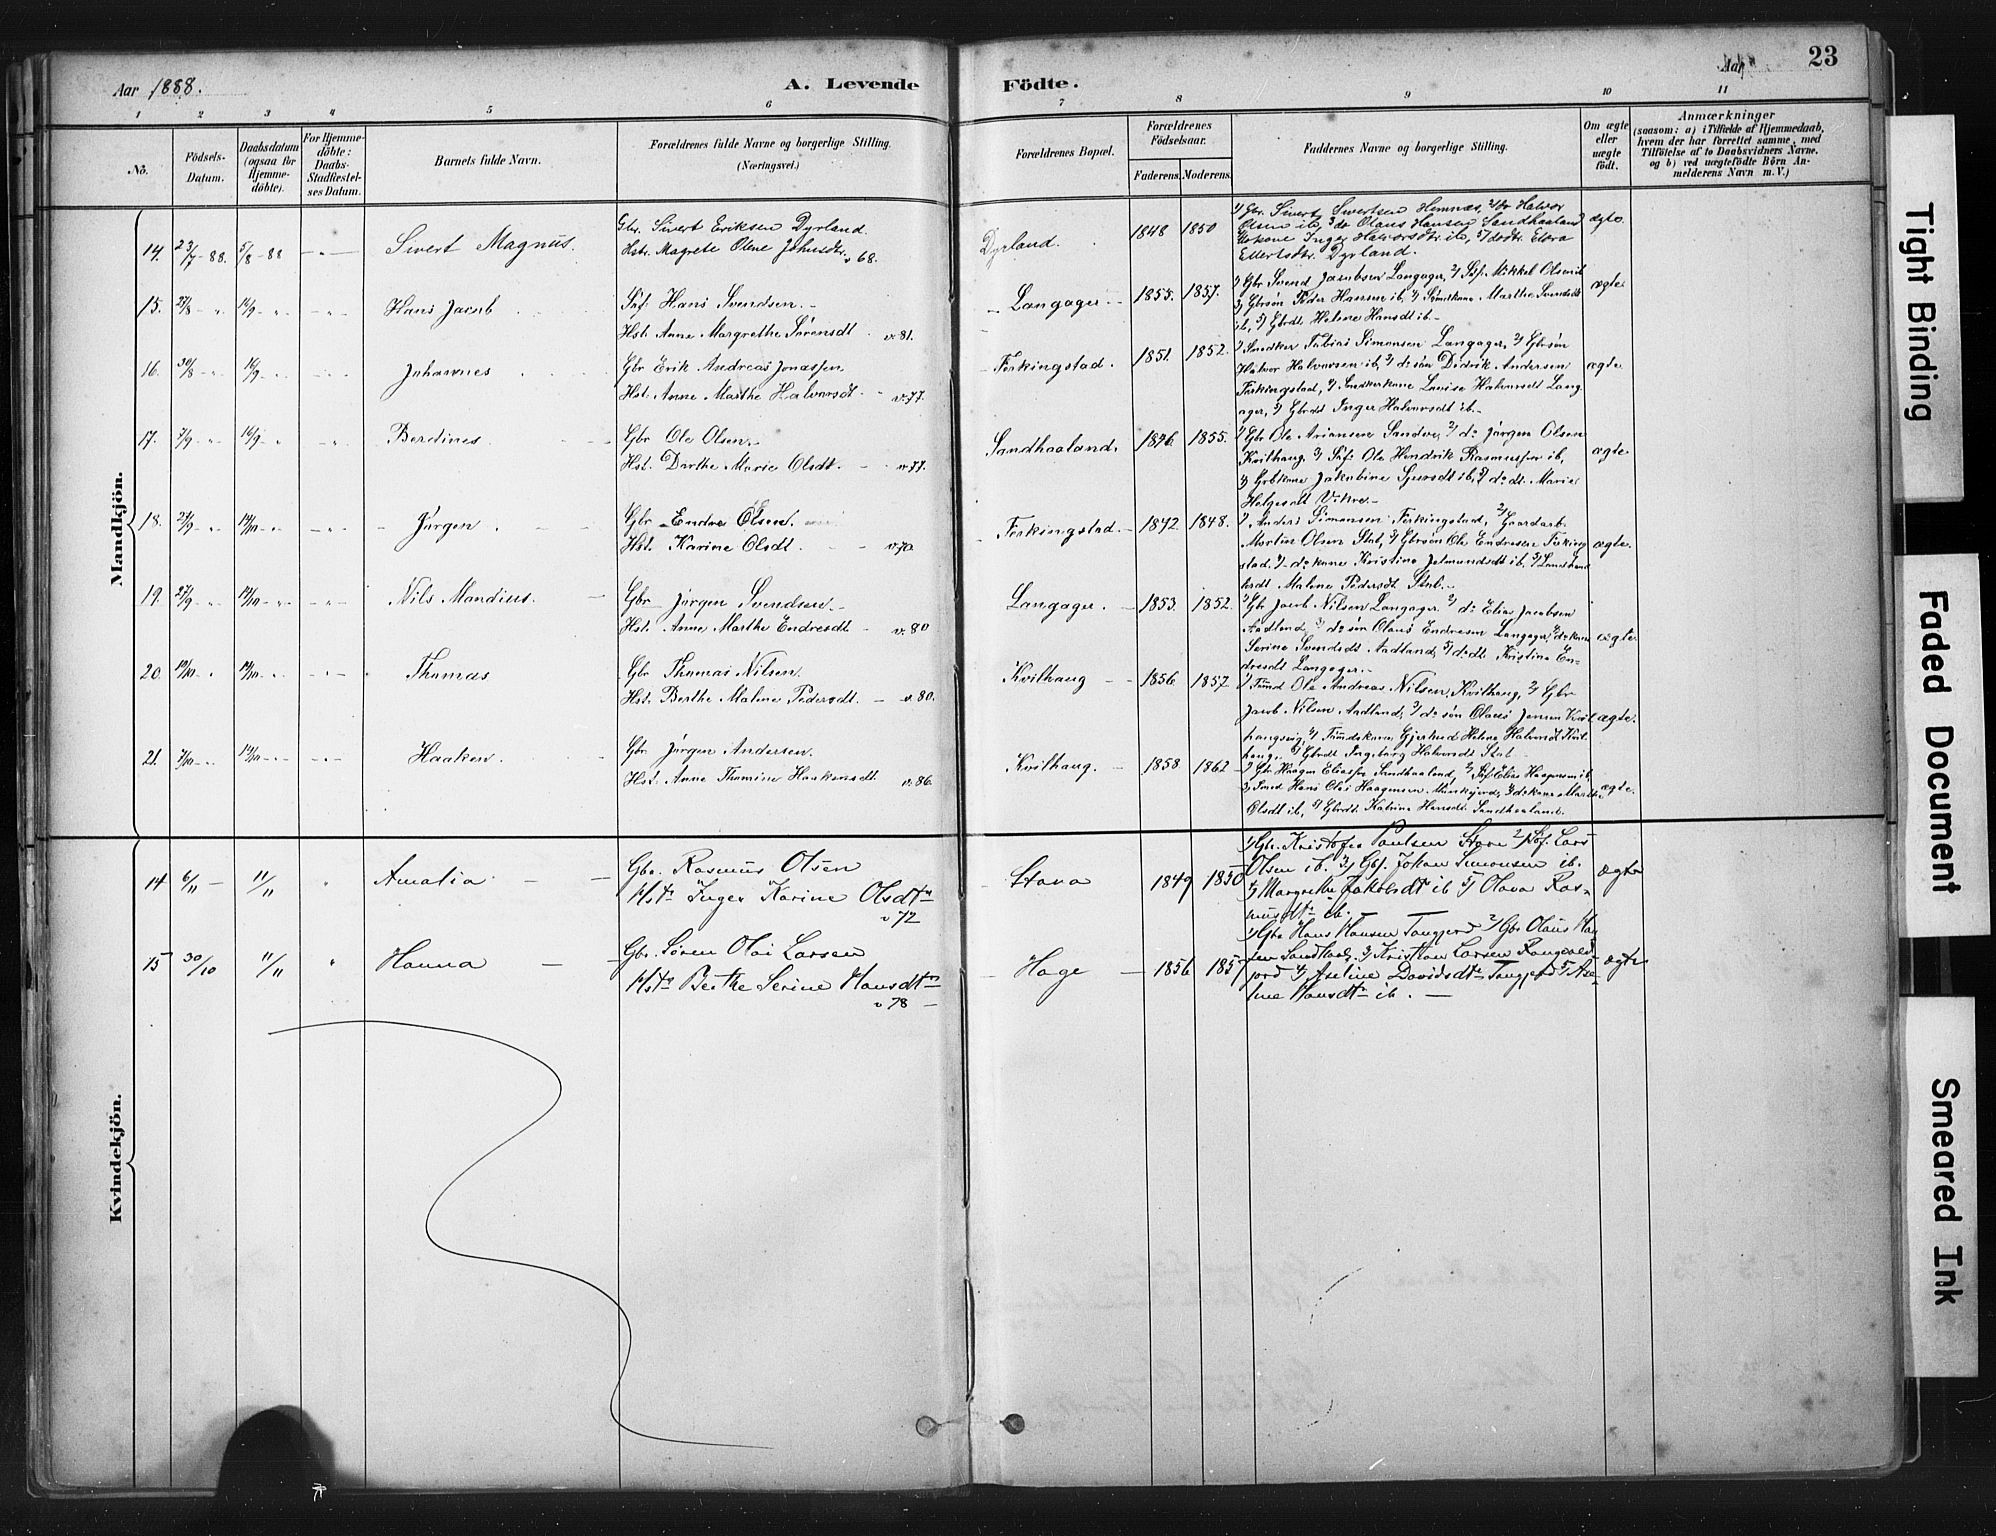 Aar 1888.
A. Levende Födte.
Aar
23
1 2 3 4 5 6 7 8 9 10 11
No.
Födsels-Datum.
Daabsdatum (ogsaa for Hjemmedöbte).
For Hjemmedöbte: Daabs-Stadfæstelses Datum.
Barnets fulde Navn.
Forældrenes fulde Navne og borgerlige Stilling. (Næringsvei.)
Forældrenes Bopæl.
Forældrenes Födselsaar.
Faderens. Moderens.
Faddernes Navne og borgerlige Stilling.
Om ægte eller uægte födt.
Anmærkninger
(saasom: a) i Tilfælde af Hjemmedaab, hvem der har forrettet samme, med Tilföielse af to Daabsvidners Navne, og b) ved uægtefödte Börn Anmelderens Navn m. V.)
Mandkjön.
14. 23/7-88. 5/8-88 Sivert Magnus.
Gbr. Sivert Eriksen Dyrland.
Hstr. Magrete Oline Johnsdtr. v 68.
Dyrland. 1848 1850
1) Gbr. Sivert Sivertsen Hemnæs, 2) Halvor
Olsen ib, 3) do Olaus Hansen Sandhaaland
Inger Halvorsdtr ib, 5)
Eilertsdtr. Dyrland.
ægte.
15. 27/8 14/9 Hans Jacob
Söf. Hans Svendsen.
Hst. Anne Margrethe Sörensdt. v. 81.
Langager. 1855. 1857.
1) Gbr Svend Jacobsen Langager, 2) Söf. Mikkel Olsen ib
3) Gbrsön Peder Hansen ib, 4) Marthe Svendsdt
ib, 5) Gbrdt Helene Hansdt ib.
ægte
16. 30/8 16/9 Johannes
Gbr Erik Andreas Jonassen
Hst. Anne Marthe Halvorsdt. v. 77.
Ferkingstad. 1851. 1852.
1) Snedker Tobias Simonsen Langager, 2) Gbrsön
Halvor Halvorsen ib, 3) do sön Didrik Andersen
Ferkingstad, 4) Snedkerkone Lovise Halvorsdt Lang
ager, 5) Gbrdt Inger Halvorsdt ib.
ægte
17. 7/9 16/9 Berdines
Gbr Ole Olsen.
Hst. Dorthe Marie Olsdt. v. 77.
Sandhaaland. 1855.
1) Gbr Ole Ariansen Sandve, 2) do Jörgen Olsen
Kvilhaug, 3) Söf. Ole Hendrik Rasmussen ib,
4) Gbrkone Jakobine ib, 5) do dt. Marie
Helgesdt Vikre.
ægte
18. 24/9 14/10 Jörgen
Gbr Endre Olsen.
Hst. Karine Olsdt. v. 70.
Ferkingstad. 1842. 1848.
1) Anders Simonsen Ferkingstad, 2) Gaardarb.
Morten Olsen Stol, 3) Gbrsön Ole Endresen Ferking
stad, 4) do kone Kristine ib, 5)
Malene Pedersdt Stol.
ægte.
19. 27/9 14/10 Nils Mandius.
Gbr Jörgen Svendsen.
Hst. Anne Marthe Endresdt v. 80
Langager. 1853. 1852.
1) Gbr Jacob Nilsen Langager 2) do Elias Jacobsen
Aadland, 3) do sön Olaus Endresen Langager, 4) do kone
Serine Svendsdt Aadland, 5) do dt. Kristine En-
dresdt Langager.
ægte
20. 14/10 Thomas
Gbr Thomas Nilsen.
Hst. Berthe Malene Pedersdt. v. 80.
Kvilhaug 1856. 1857
1) Ole Andreas Nilsen, Kvilhaug, 2) Gbr
Jacob Nilsen Aadland, 3) do sön Olaus Jensen
Helene Halvorsdt Kvil
haug, 5) Gbrdt Ingeborg Halvorsdt Stol
ægte.
21. 14/10 Haaken
Gbr Jörgen Andersen.
Hst. Anne Thomine Haakensdt. v. 86.
Kvilhaug. 1858 1862
1) Gbr Haagen Eliassen Sandhaaland, 2) Söf. Elias Haagensen ib,
3) Smed Hans Olai Haagensen Munkejord, 4) do kone Marthe
Olsdt ib, 5) Gbrdt Katrine Hansdt Sandhaaland.
ægte.
Kvindekjön.
14 6/11 11/11 Amalia
Gbr. Rasmus Olsen
Hst Inger Karine Olsdtr
v 72
Stava 1849 1850
1) Gbr. Kristofer Paulsen Stava 2) Söf. Lars
Olsen ib. 3) Gbs. Johan Simonsen ib.
4) Margrethe Jakobsdt ib 5) Olava Ras-
musdtr ib.
ægte
15 30/10 11/11 Hanna
Gbr. Sören Olai Larsen
Hst Berthe Serine Hansdtr
v 78
Hage 1856 1857
1) Gbr Hans Hansen Tangjerd 2) Gbr Olaus Han
sen Sandhaal. 3) Kristian Larsen
4) Aseline Davidsdtr Tangjerd 5)
line Hansdtr ib.
ægte
Tight Binding
Faded Document
Smeared Ink